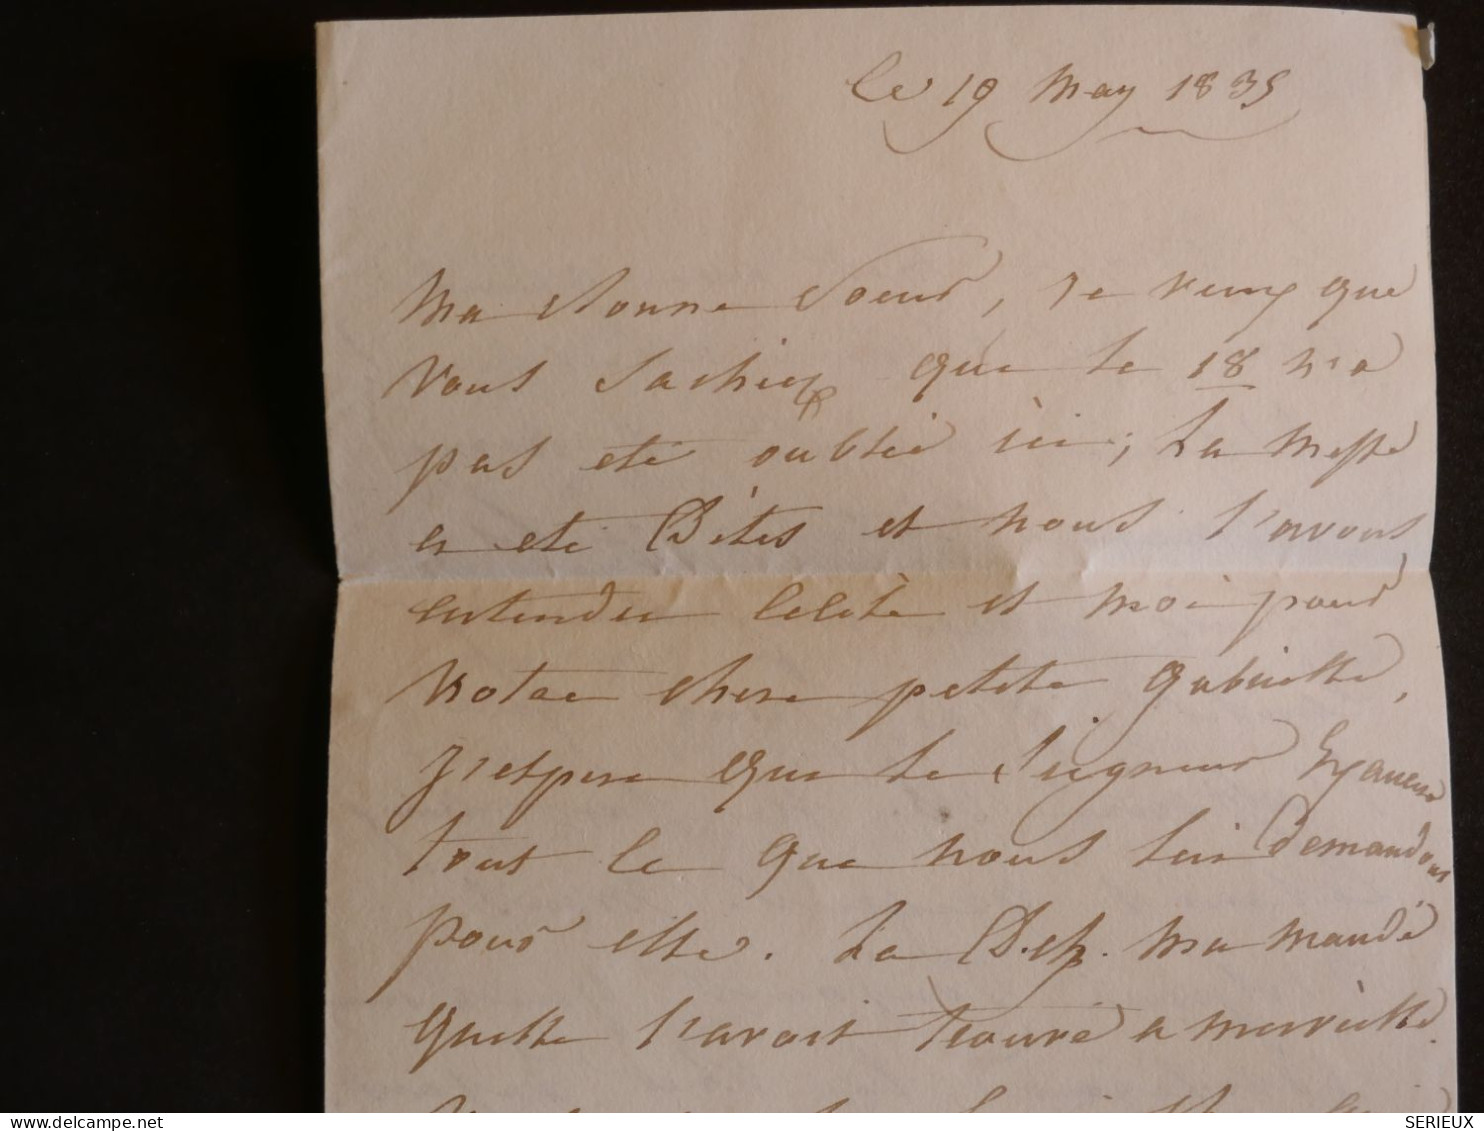 le 19 May 1835
Ma Bonne Soeur, Je veux que
Vous Sachiez que le 18 n'a
pas eté oublié ici; La messe
a eté Dites et nous l'avons
entendue et moi pour
votre chere petite Gabrielle,
J'espere que le Seigneur Exaucera
tout ce que nous lui demandons
pour elle. La m'a mandé
quelle l'avoit trouvé a merveille.
SERIEUX